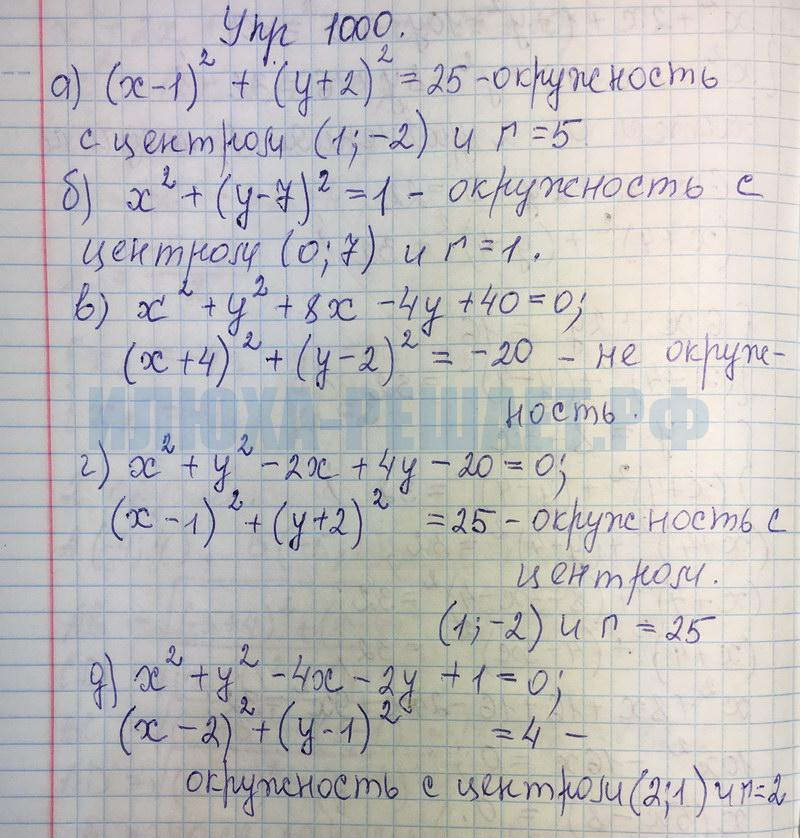 Упр 1000.
а) (x-1)² + (y+2)² = 25 - окружность
с центром (1; -2) и r = 5
б) x² + (y-7)² = 1 - окружность с
центром (0; 7) и r = 1.
в) x² + y² + 8x - 4y + 40 = 0;
(x+4)² + (y-2)² = -20 - не окруж-
ность.
ИЛЮХА-РЕШАЕТ.РФ
г) x² + y² - 2x + 4y - 20 = 0;
(x-1)² + (y+2)² = 25 - окружность с
центром.
(1; -2) и r = 25
д) x² + y² - 4x - 2y + 1 = 0;
(x-2)² + (y-1)² = 4 -
окружность с центром (2; 1) и r = 2